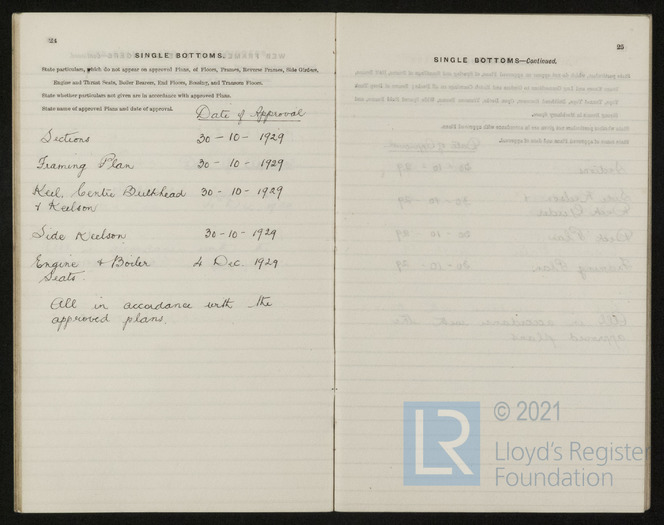 24
SINGLE BOTTOMS.
State particulars, which do not appear on approved Plans, of Floors, Frames, Reverse Frames, Side Girders,
Engine and Thrust Seats, Boiler Bearers, End Floors, Breasting, and Transom Floors.
State whether particulars not given are in accordance with approved Plans.
State name of approved Plans and date of approval.
Date of Approval
Sections 30-10-1929
Framing Plan 30-10-1929
Keel, Centre Bulkhead 30-10-1929
& Keelson
Side Keelson 30-10-1929
Engine & Boiler 4 Dec. 1929
Seats.
All in accordance with the
approved plans.
25
SINGLE BOTTOMS—Continued.
© 2021
LR
Lloyd's Register
Foundation